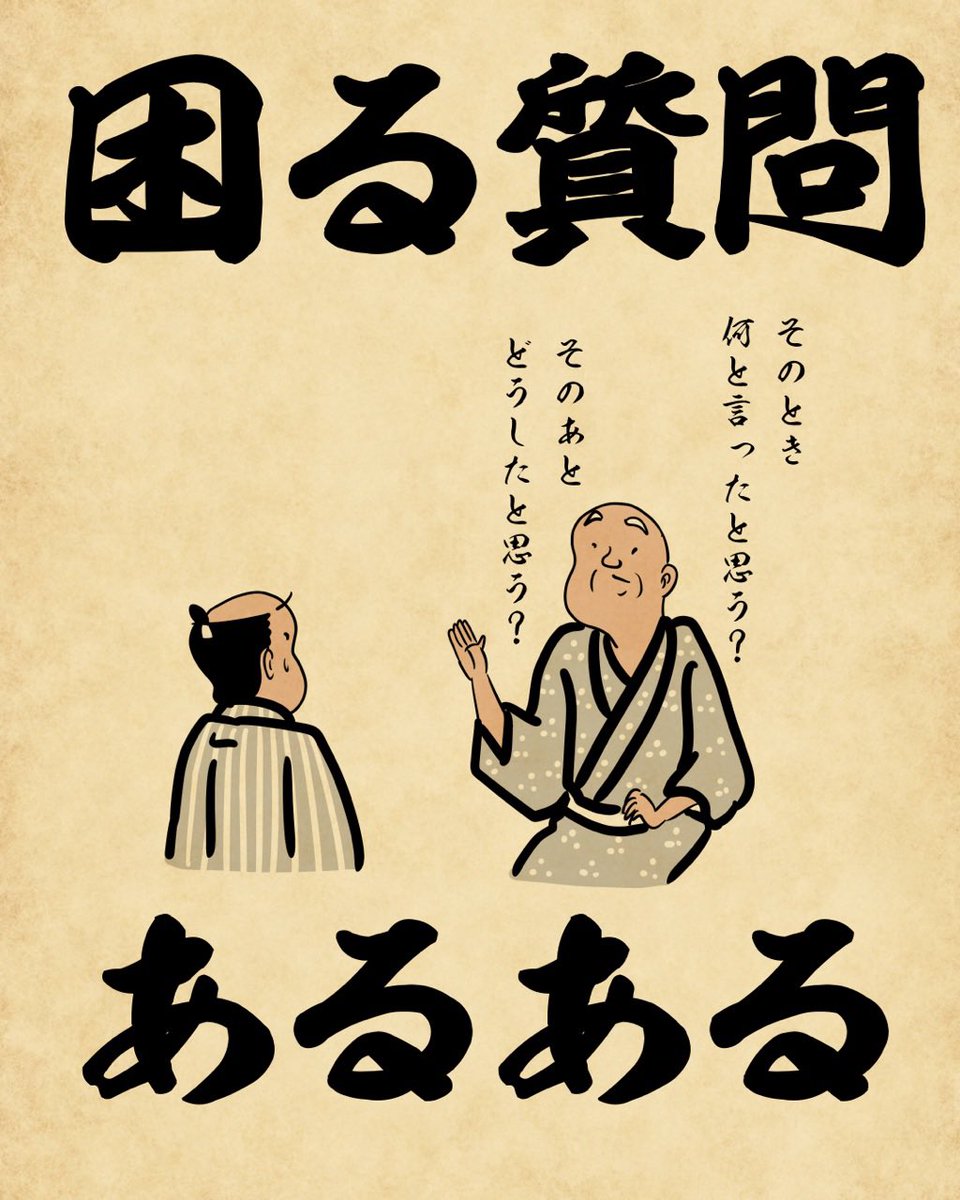 困る質問
そのとき
何と言ったと思う？
そのあと
どうしたと思う？
あるある